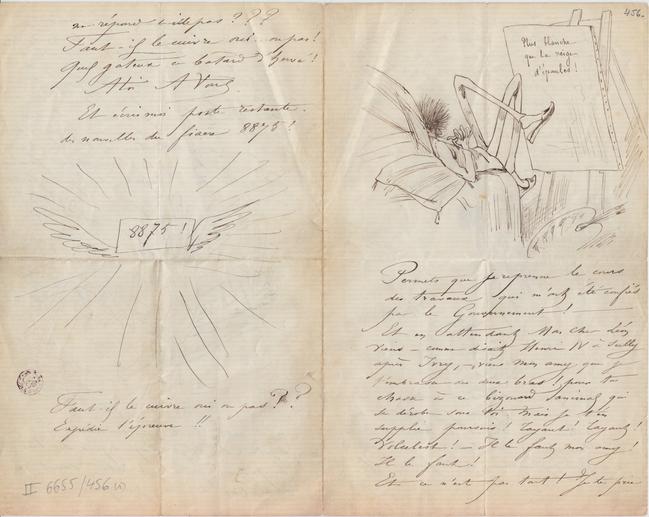 ne répond-t-ille pas ???
Faut-il le cuivre oui ou pas!
Quel gâteux ce batard d'Hervé!
A toi A Vous
Et écris moi poste restante
des nouvelles du fiacre 8875!
8875!
Faut-il le cuivre oui ou pas??
Expédie l'épreuve!!
II 6655/456
456.
Plus blanche
que la neige
d'épaules!
Permets que je reprenne le cours
des travaux qui m'ont été confiés
par le Gouvernement!
Et en attendant Mon cher Léon
viens – comme disait Henri IV à Sully
après Ivry, viens mon amy que je
t'embrasse des deux bras! pour ta
chasse à ce
qui se dérobe sous toi. Mais je t'en
supplie poursuis! Tayaut! Tayaut!
– Il le faut mon amy!
Il le faut!
Et ce n'est pas tout! Je te prie